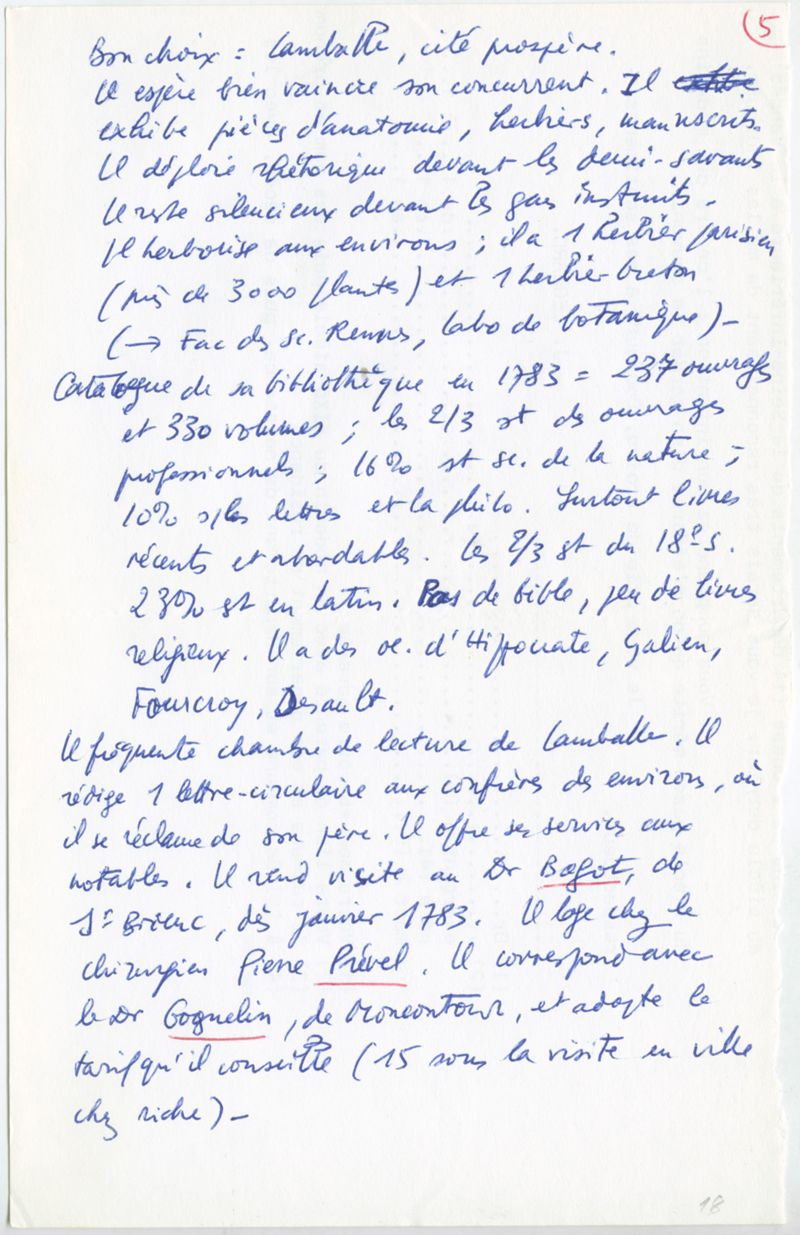 5
Bon choix = Lamballe, cité prospère.
Il espère bien vaincre son concurrent. Il
exhibe pièces d'anatomie, herbiers, manuscrits.
Il déploie rhétorique devant les demi-savants
Il reste silencieux devant les gens instruits.
Il herborise aux environs ; il a 1 herbier parisien
(près de 3000 plantes) et 1 herbier breton
(→ Fac des sc. Rennes, labo de botanique) –
Catalogue de sa bibliothèque en 1783 = 237 ouvrages
et 330 volumes ; les 2/3 st des ouvrages
professionnels ; 16% st sc. de la nature ;
10% s/les lettres et la philo. Surtout livres
récents et abordables. Les 2/3 st du 18e s.
23% st en latin. Pas de bible, peu de livres
religieux. Il a des oe. d'Hippocrate, Galien,
Fourcroy, Desault.
Il fréquente chambre de lecture de Lamballe. Il
rédige 1 lettre-circulaire aux confrères des environs, où
il se réclame de son père. Il offre ses services aux
notables. Il rend visite au Dr Bagot, de
St Brieuc, dès janvier 1783. Il loge chez le
chirurgien Pierre Prével. Il correspond avec
le Dr Goguelin, de Moncontour, et adopte le
tarif qu'il conseille (15 sous la visite en ville
chez riche) –
18